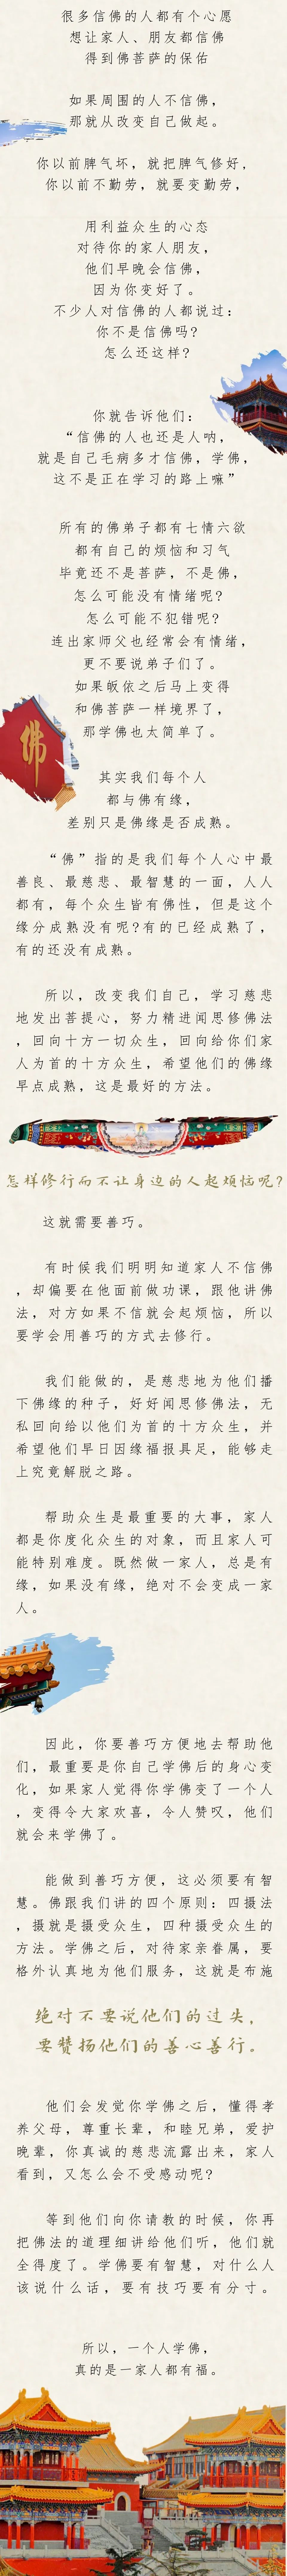 很多信佛的人都有个心愿
想让家人、朋友都信佛
得到佛菩萨的保佑
如果周围的人不信佛，
那就从改变自己做起。
你以前脾气坏，就把脾气修好，
你以前不勤劳，就要变勤劳，
用利益众生的心态
对待你的家人朋友，
他们早晚会信佛，
因为你变好了。
不少人对信佛的人都说过：
你不是信佛吗？
怎么还这样？
你就告诉他们：
“信佛的人也还是人呐，
就是自己毛病多才信佛，学佛，
这不是正在学习的路上嘛”
所有的佛弟子都有七情六欲
都有自己的烦恼和习气
毕竟还不是菩萨，不是佛，
怎么可能没有情绪呢？
怎么可能不犯错呢？
连出家师父也经常会有情绪，
更不要说弟子们了。
如果皈依之后马上变得
和佛菩萨一样境界了，
那学佛也太简单了。
佛
其实我们每个人
都与佛有缘，
差别只是佛缘是否成熟。
“佛”指的是我们每个人心中最
善良、最慈悲、最智慧的一面，人人
都有，每个众生皆有佛性，但是这个
缘分成熟没有呢？有的已经成熟了，
有的还没有成熟。
所以，改变我们自己，学习慈悲
地发出菩提心，努力精进闻思修佛法
，回向十方一切众生，回向给你们家
人为首的十方众生，希望他们的佛缘
早点成熟，这是最好的方法。
怎样修行而不让身边的人起烦恼呢？
这就需要善巧。
有时候我们明明知道家人不信佛
，却偏要在他面前做功课，跟他讲佛
法，对方如果不信就会起烦恼，所以
要学会用善巧的方式去修行。
我们能做的，是慈悲地为他们播
下佛缘的种子，好好闻思修佛法，无
私回向给以他们为首的十方众生，并
希望他们早日因缘福报具足，能够走
上究竟解脱之路。
帮助众生是最重要的大事，家人
都是你度化众生的对象，而且家人可
能特别难度。既然做一家人，总是有
缘，如果没有缘，绝对不会变成一家
人。
因此，你要善巧方便地去帮助他
们，最重要是你自己学佛后的身心变
化，如果家人觉得你学佛变了一个人
，变得令大家欢喜，令人赞叹，他们
就会来学佛了。
能做到善巧方便，这必须要有智
慧。佛跟我们讲的四个原则：四摄法
，摄就是摄受众生，四种摄受众生的
方法。学佛之后，对待家亲眷属，要
格外认真地为他们服务，这就是布施
绝对不要说他们的过失，
要赞扬他们的善心善行。
他们会发觉你学佛之后，懂得孝
养父母，尊重长辈，和睦兄弟，爱护
晚辈，你真诚的慈悲流露出来，家人
看到，又怎么会不受感动呢？
等到他们向你请教的时候，你再
把佛法的道理细讲给他们听，他们就
全得度了。学佛要有智慧，对什么人
该说什么话，要有技巧要有分寸。
所以，一个人学佛，
真的是一家人都有福。